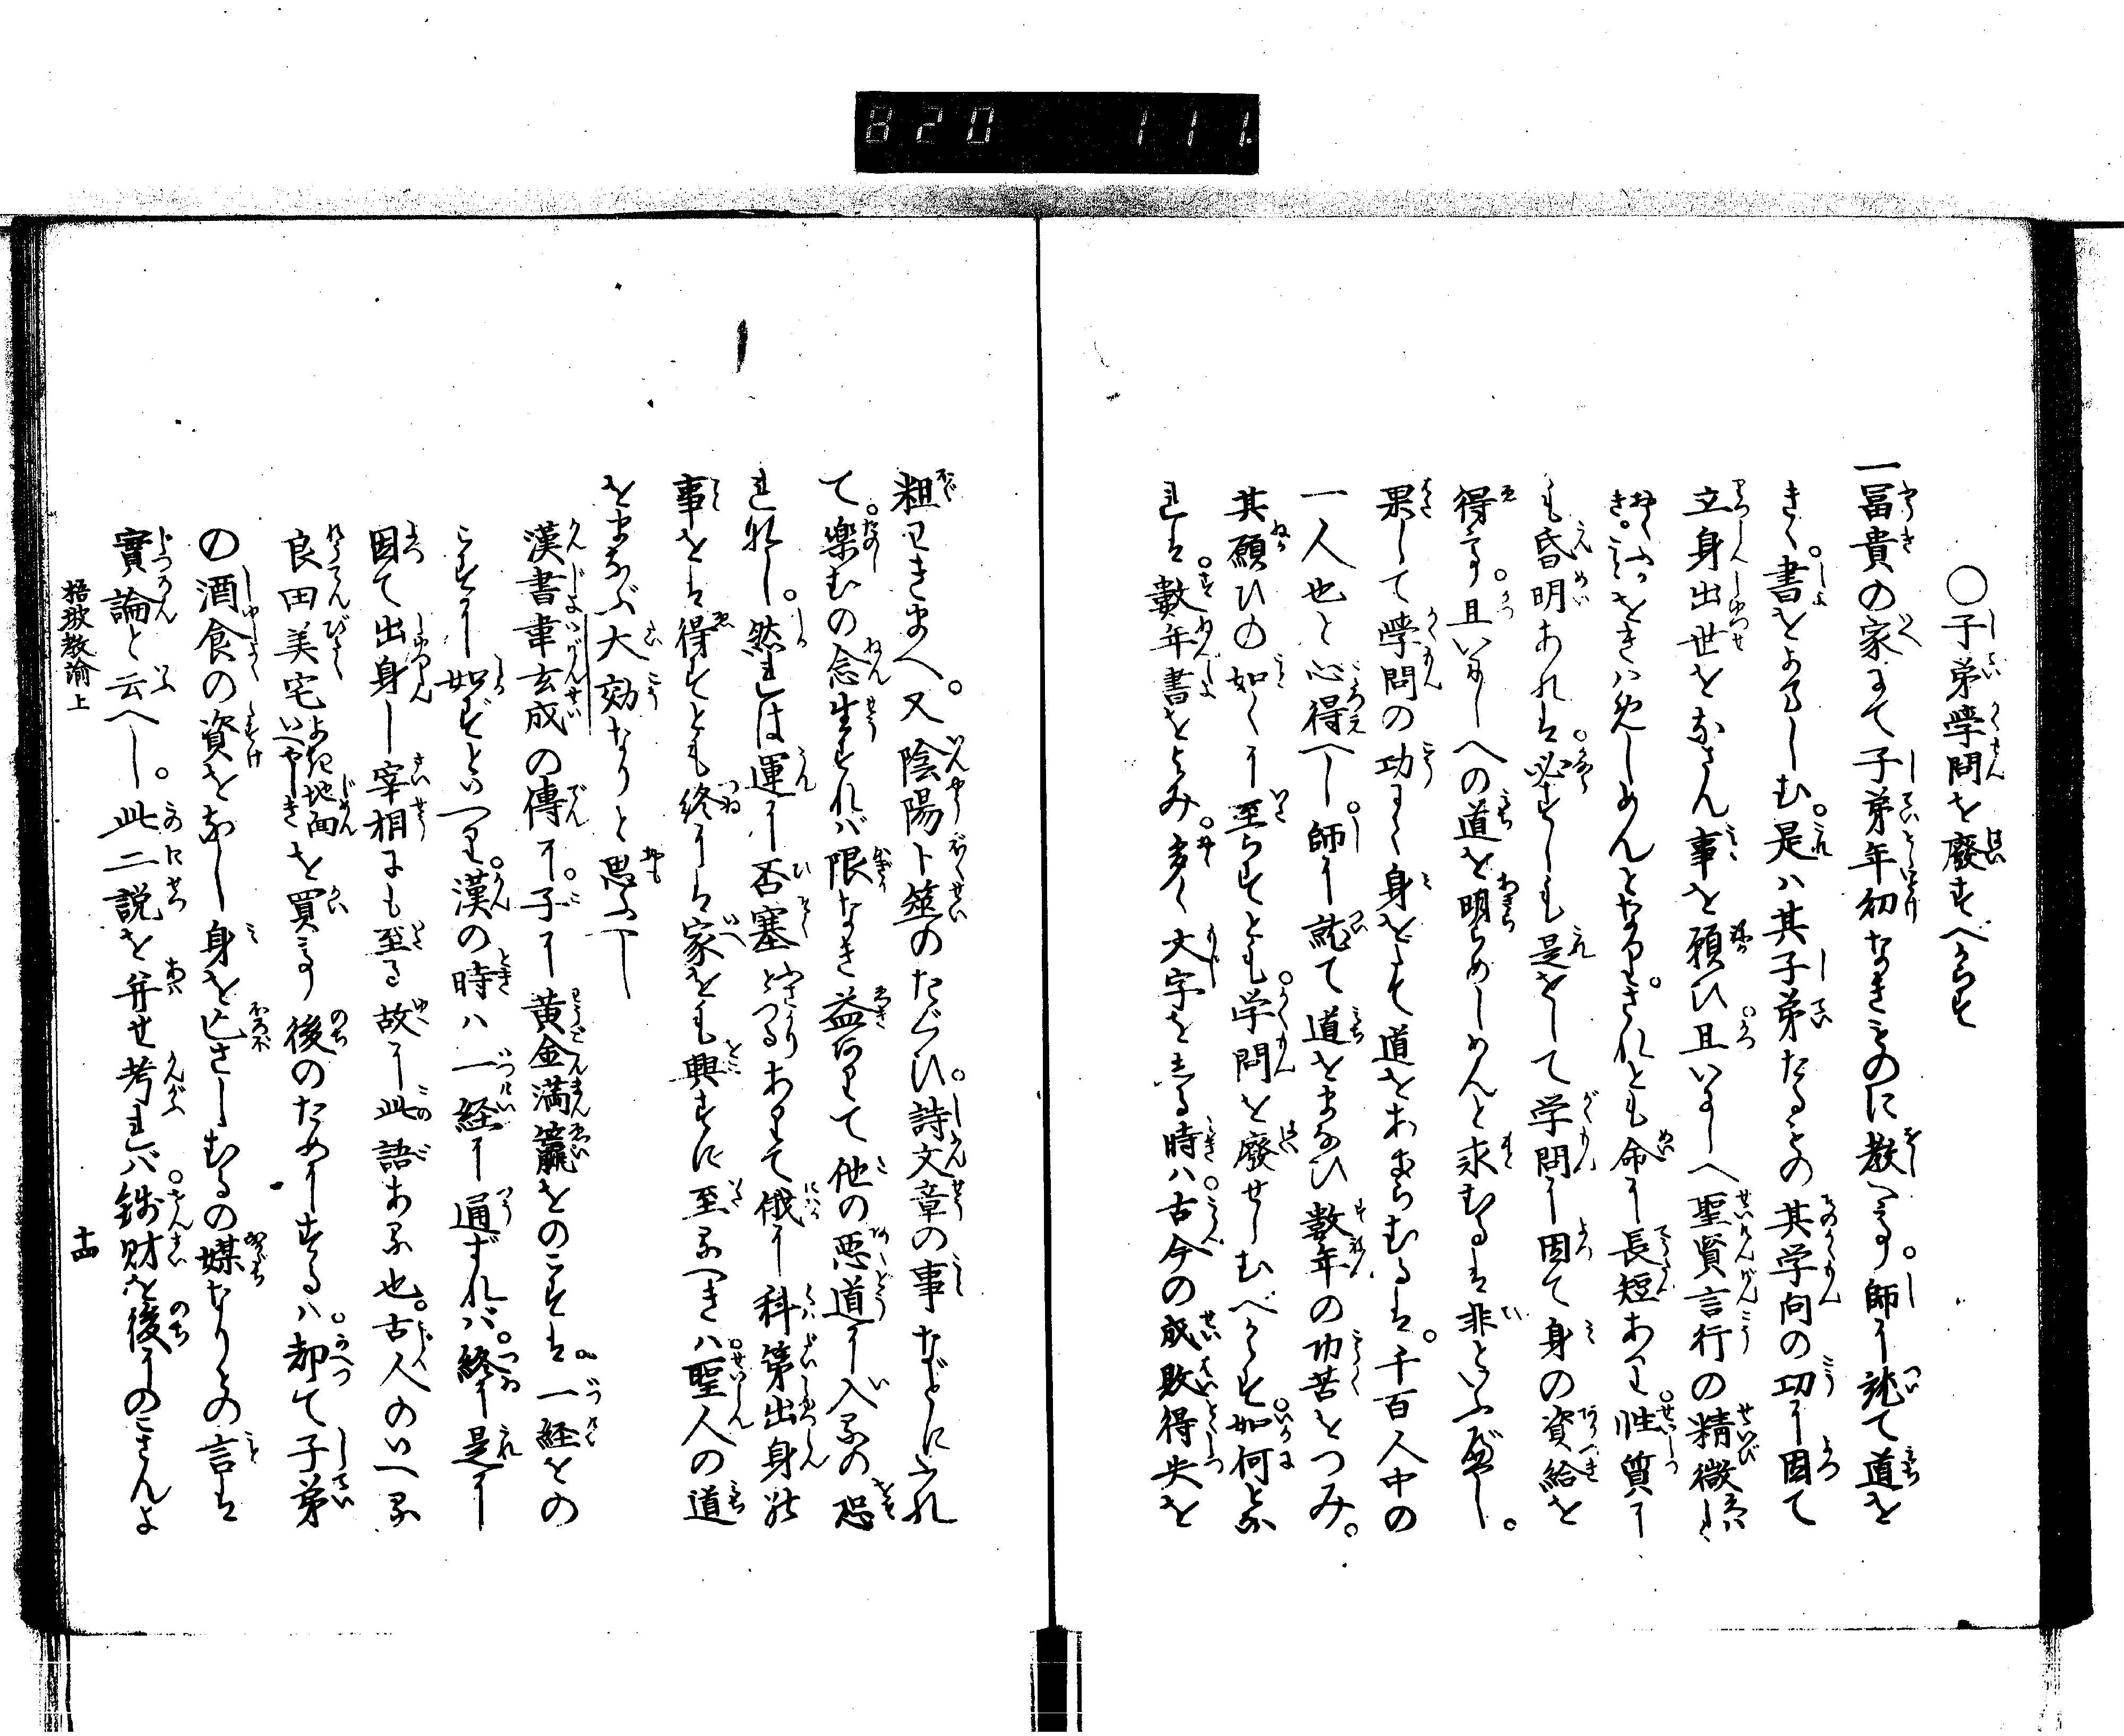 820 111.
○子弟学問を廃すべからす
一冨貴の家にて子弟年初なきものに教へるヿ。師に就て道を
きゝ。書をよましむ。是ハ其子弟たるもの其学向の功に因て
立身出世をなさん事を願ひ且いにしへ聖賢言行の精微しく
も昏明あれは。必すしも是をして学問に因て身の資給を
得ヿ。且いにしへの道を明らめしめんと求むるは非といふべし。
果して学問の功にて身をたて道をあきらむるは。千百人中の
一人也と心得へし。師に就て道をまなひ数年の功苦をつみ。
其願ひの如くに至らすとも。学問を廃せしむべからす。如何となれは
は。数年書をよみ。多く文字をしる時ハ。古今の成敗得失を
粗わきまへ。又陰陽卜筮のたぐひ。詩文章の事などにふれ
て。楽むの念生すれバ限なき益ありて他の悪道に入るの恐
れなし。然れは運に否塞とつるふさがりありて俄に科第出身の
事をは得すとも終には家をも興すに至るへきハ。聖人の道
をまなぶ大効なりと思ふへし
漢書韋玄成の傳に。子に黄金満籯をのこすは。一経をの
こすに如ずといへり。漢の時ハ一経に通ずれバ。終に是に
因て出身し宰相にも至る故に此語ある也。古人のいへる
良田美宅よき地面いへやしきを買ヿ後のためにするハ。却て子弟
の酒食の資をなし身を亡さしむるの媒なりとの言は
實論と云へし。此二説を并せ考れバ。銭財を後にのこさんよ
梧坡教諭上
十四